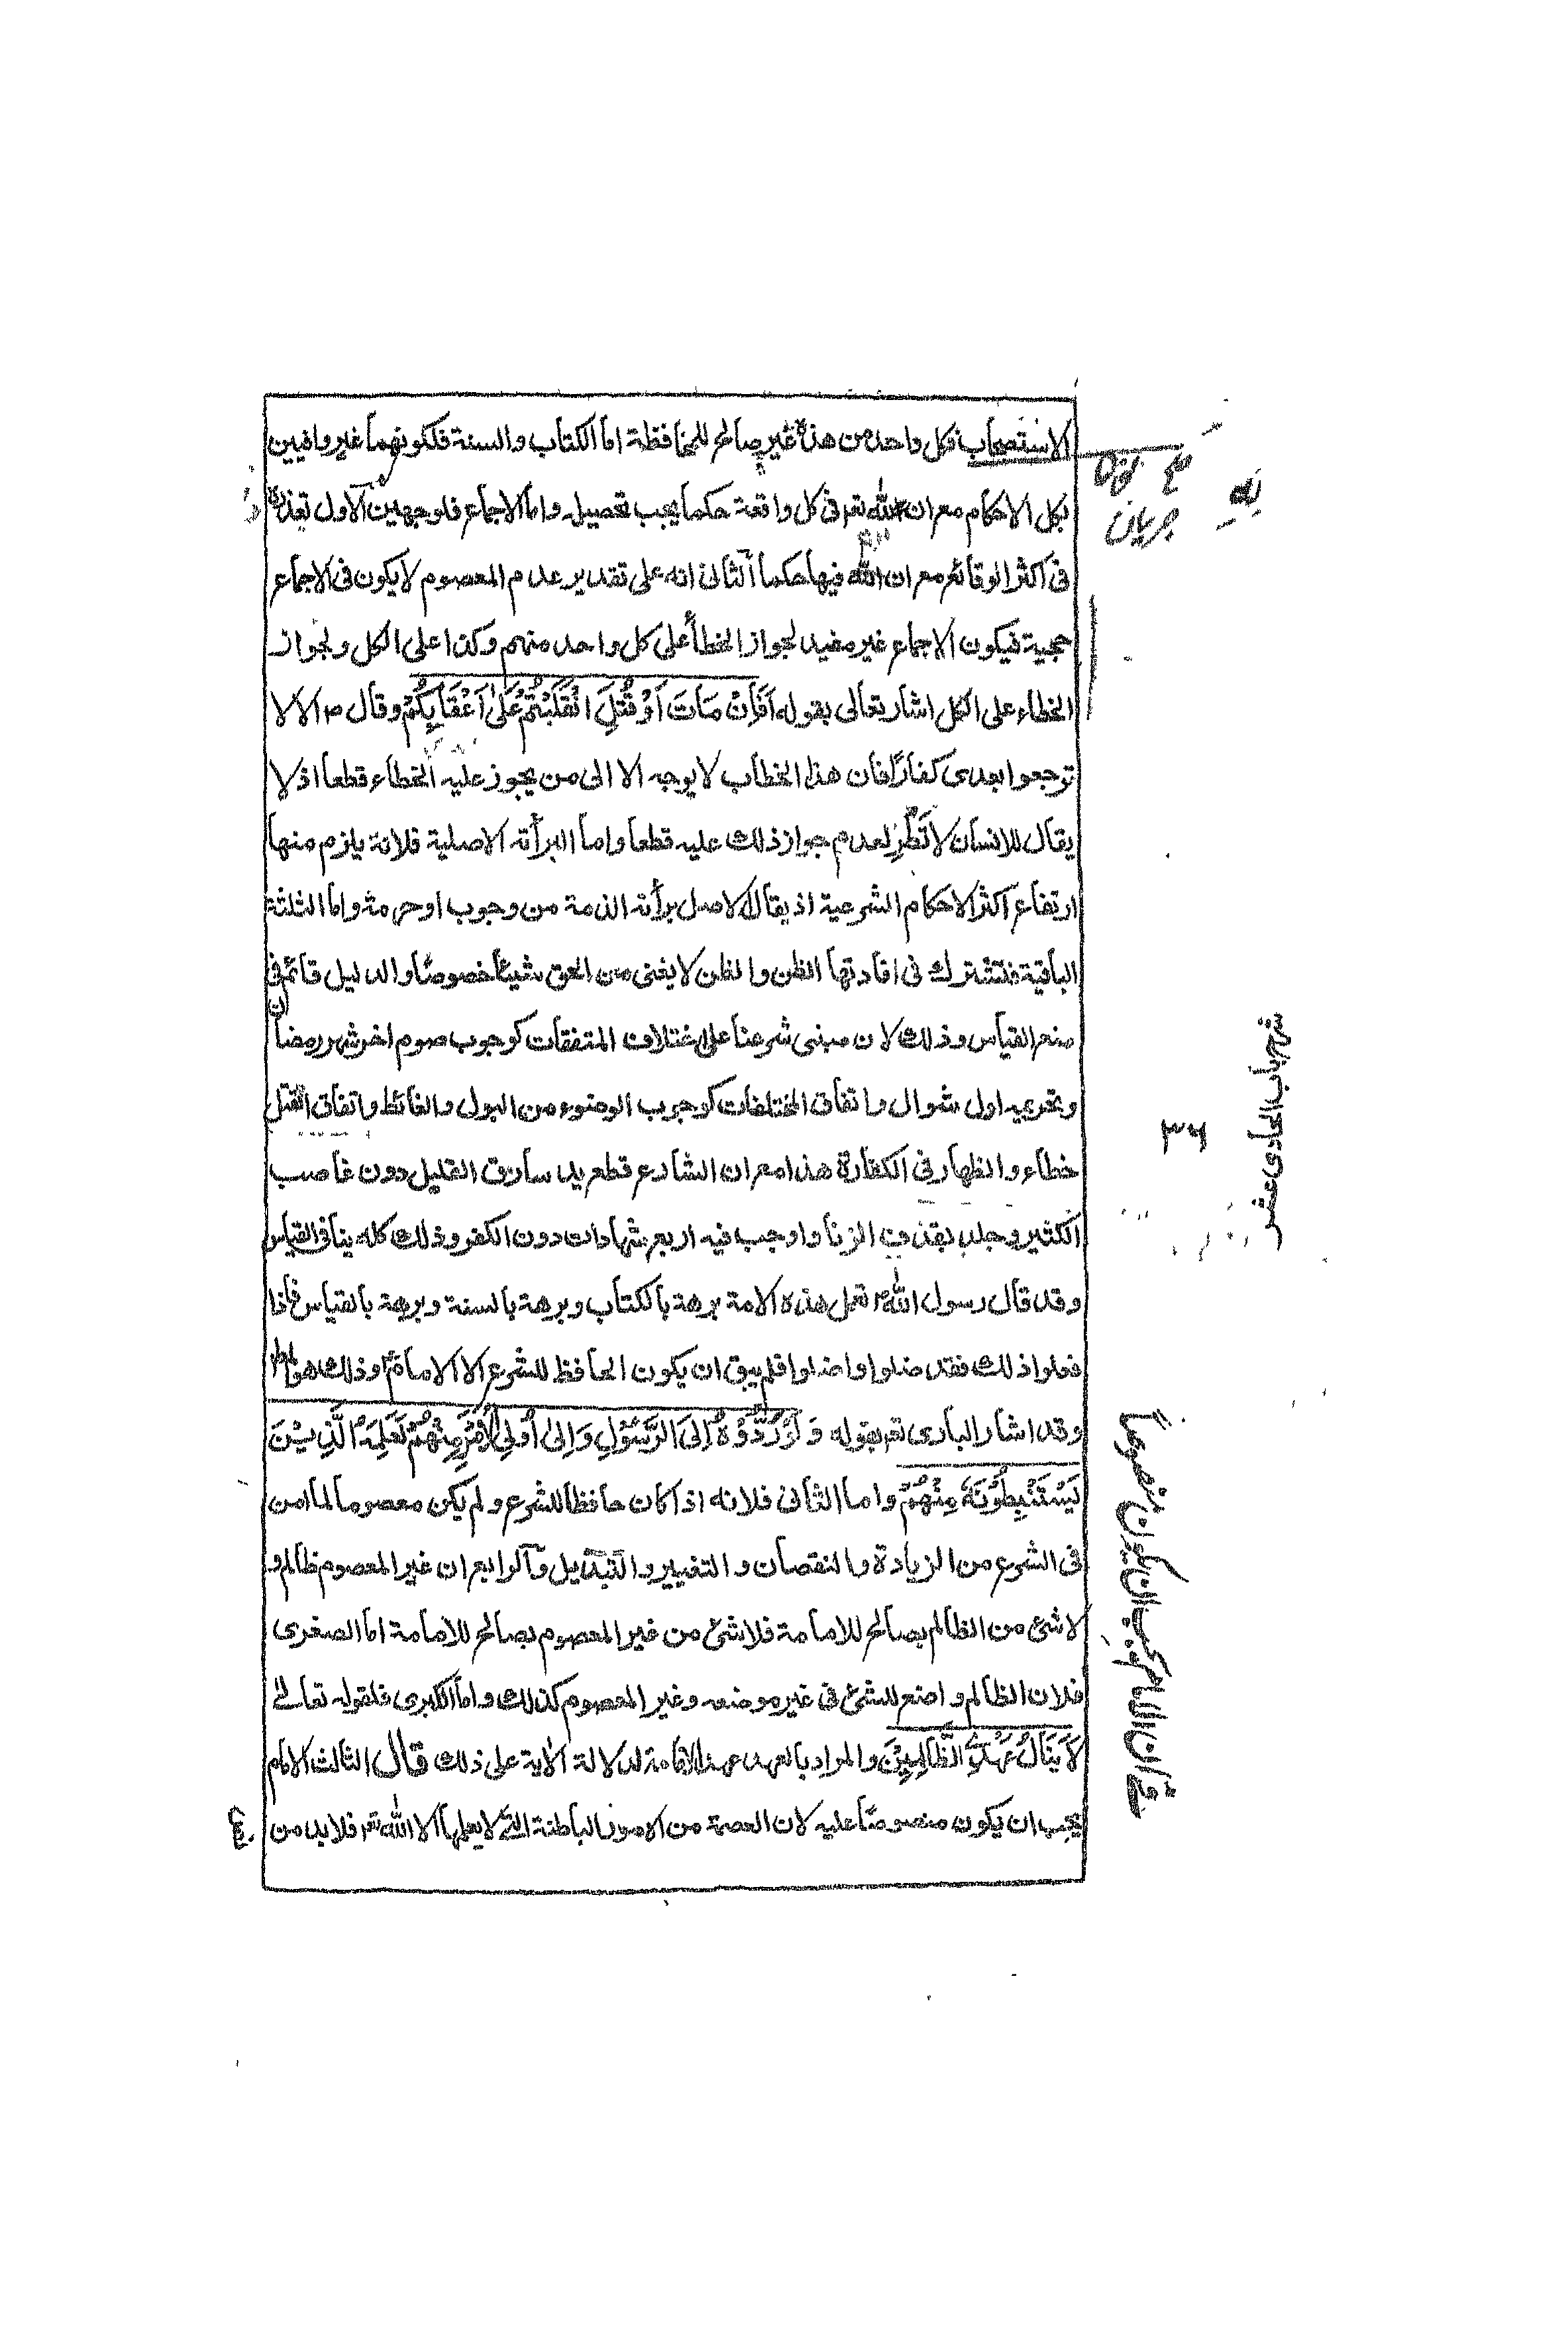 الاستصحاب فكل واحد من هذه غير صالح للمحافظة اما الكتاب والسنة فلكونهما غير وافيين
بكل الاحكام مع ان لله تعم فى كل واقعة حكما يجب تحصيله واما الاجماع فلوجهين الاول تعذره
فى اكثر الوقائع مع ان لله فيها حكما الثانى انه على تقدير عدم المعصوم لا يكون فى الاجماع
حجية فيكون الاجماع غير مفيد لجواز الخطأ على كل واحد منهم وكذا على الكل ولجواز
الخطاء على الكل اشار تعالى بقوله اَفَاِنْ مَاتَ اَوْ قُتِلَ انْقَلَبْتُمْ عَلٰى اَعْقَابِكُمْ وقال ص الا لا
ترجعوا بعدى كفارًا فان هذا الخطاب لا يوجه الا الى من يجوز عليه الخطاء قطعا اذ لا
يقال للانسان لا تَطِرْ لعدم جواز ذلك عليه قطعا واما البرأته الاصلية فلانة يلزم منها
ارتفاع اكثر الاحكام الشرعية اذ يقال الاصل برأته الذمة من وجوب او حرمة واما الثلثة
الباقية فتشترك فى افادتها الظن والظن لا يغنى من الحق شيئا خصوصًا والدليل قائم فى
منع القياس وذلك لان مبنى شرعنا على اختلاف المتفقات كوجوب صوم اخر شهر رمضان
وتحريم اول شوال واتفاق المختلفات كوجوب الوضوء من البول والغائط واتفاق القتل
خطاء والظهار فى الكفارة هذا مع ان الشارع قطع يد سارق القليل دون غاصب
الكثير وجلد بقذف الزنا واوجب فيه اربع شهادات دون الكفر وذلك كله ينافى القياس
وقد قال رسول الله ص تعمل هذه الامة برهة بالكتاب وبرهة بالسنة وبرهة بالقياس فاذا
فعلوا ذلك فقد ضلوا واضلوا فلم يبق ان يكون الحافظ للشرع الا الامام وذلك هو المط
وقد اشار البارى تعم بقوله وَلَوْ رَدُّوْهُ اِلَى الرَّسُوْلِ وَاِلٰى اُولِى الْاَمْرِ مِنْهُمْ لَعَلِمَهُ الَّذِيْنَ
يَسْتَنْبِطُوْنَهُ مِنْهُمْ واما الثانى فلانه اذا كان حافظا للشرع ولم يكن معصوما لما امن
فى الشرع من الزيادة والنقصان والتغيير والتبديل والرابع ان غير المعصوم ظالم و
لا شئ من الظالم بصالح للامامة فلا شئ من غير المعصوم بصالح للامامة اما الصغرى
فلان الظالم واضع للشئ فى غير موضعه وغير المعصوم كذلك واما الكبرى فلقوله تعالى
لَا يَنَالُ عَهْدِى الظَّالِمِيْنَ والمراد بالعهد عهد الامامة لدلالة الآية على ذلك قال الثالث الامام
يجب ان يكون منصوصًا عليه لان العصمة من الامور الباطنة التى لا يعلمها الا الله تعم فلا بد من
جريان
شرح باب الحادى عشر
فى ان الامام يجب ان يكون منصوصاً